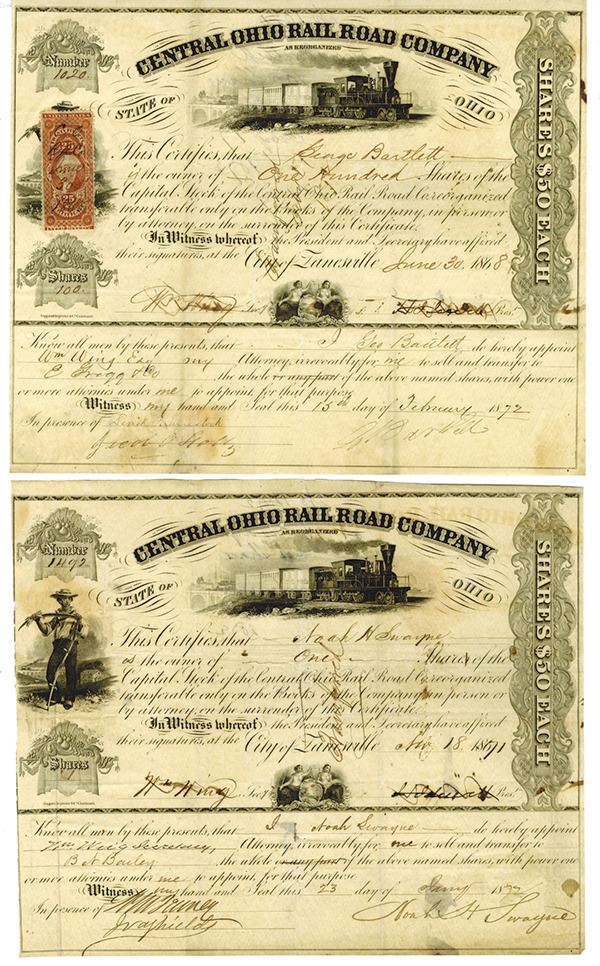 CENTRAL OHIO RAIL ROAD COMPANY
AS REORGANIZED
Number
1020
STATE OF OHIO
SHARES $50 EACH
This Certifies, that George Bartlett
is the owner of One Hundred Shares of the
Capital Stock of the Central Ohio Rail Road Co. reorganized
transferable only on the Books of the Company, in person or
by attorney, on the surrender of this Certificate.
In Witness whereof the President and Secretary have affixed
their signatures, at the City of Zanesville June 30 1868
25
25
Shares
100
Wm Wing Secy. Pres.
Know all men by these presents, that I Geo Bartlett do hereby appoint
Wm Wing Esq my Attorney, irrevocably, for me to sell and transfer to
the whole or any part of the above named shares, with power one
or more attorneys under me to appoint, for that purpose
Witness my hand and Seal this 15th day of February 1872
In presence of
G Bartlett
CENTRAL OHIO RAIL ROAD COMPANY
AS REORGANIZED
Number
1492
STATE OF OHIO
SHARES $50 EACH
This Certifies, that Noah H Swayne
is the owner of One Shares of the
Capital Stock of the Central Ohio Rail Road Co. reorganized
transferable only on the Books of the Company, in person or
by attorney, on the surrender of this Certificate.
In Witness whereof the President and Secretary have affixed
their signatures, at the City of Zanesville Nov 18 1871
Shares
1
Wm Wing Secy. Pres.
Know all men by these presents, that I Noah Swayne do hereby appoint
Wm Wing Secretary, Attorney, irrevocably for me to sell and transfer to
the whole or any part of the above named shares, with power one
or more attorneys under me to appoint, for that purpose
Witness my hand and Seal this 23 day of Jany
In presence of
Noah H Swayne